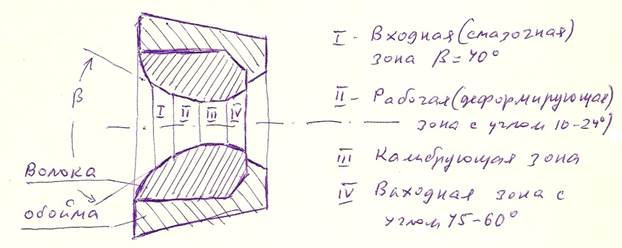 β
I II III IV
Волока
обойма
I - Входная (смазочная)
зона β = 40°
II - Рабочая (деформирующая)
зона с углом 10-24°)
III Калибрующая зона
IV Выходная зона с
углом 45-60°